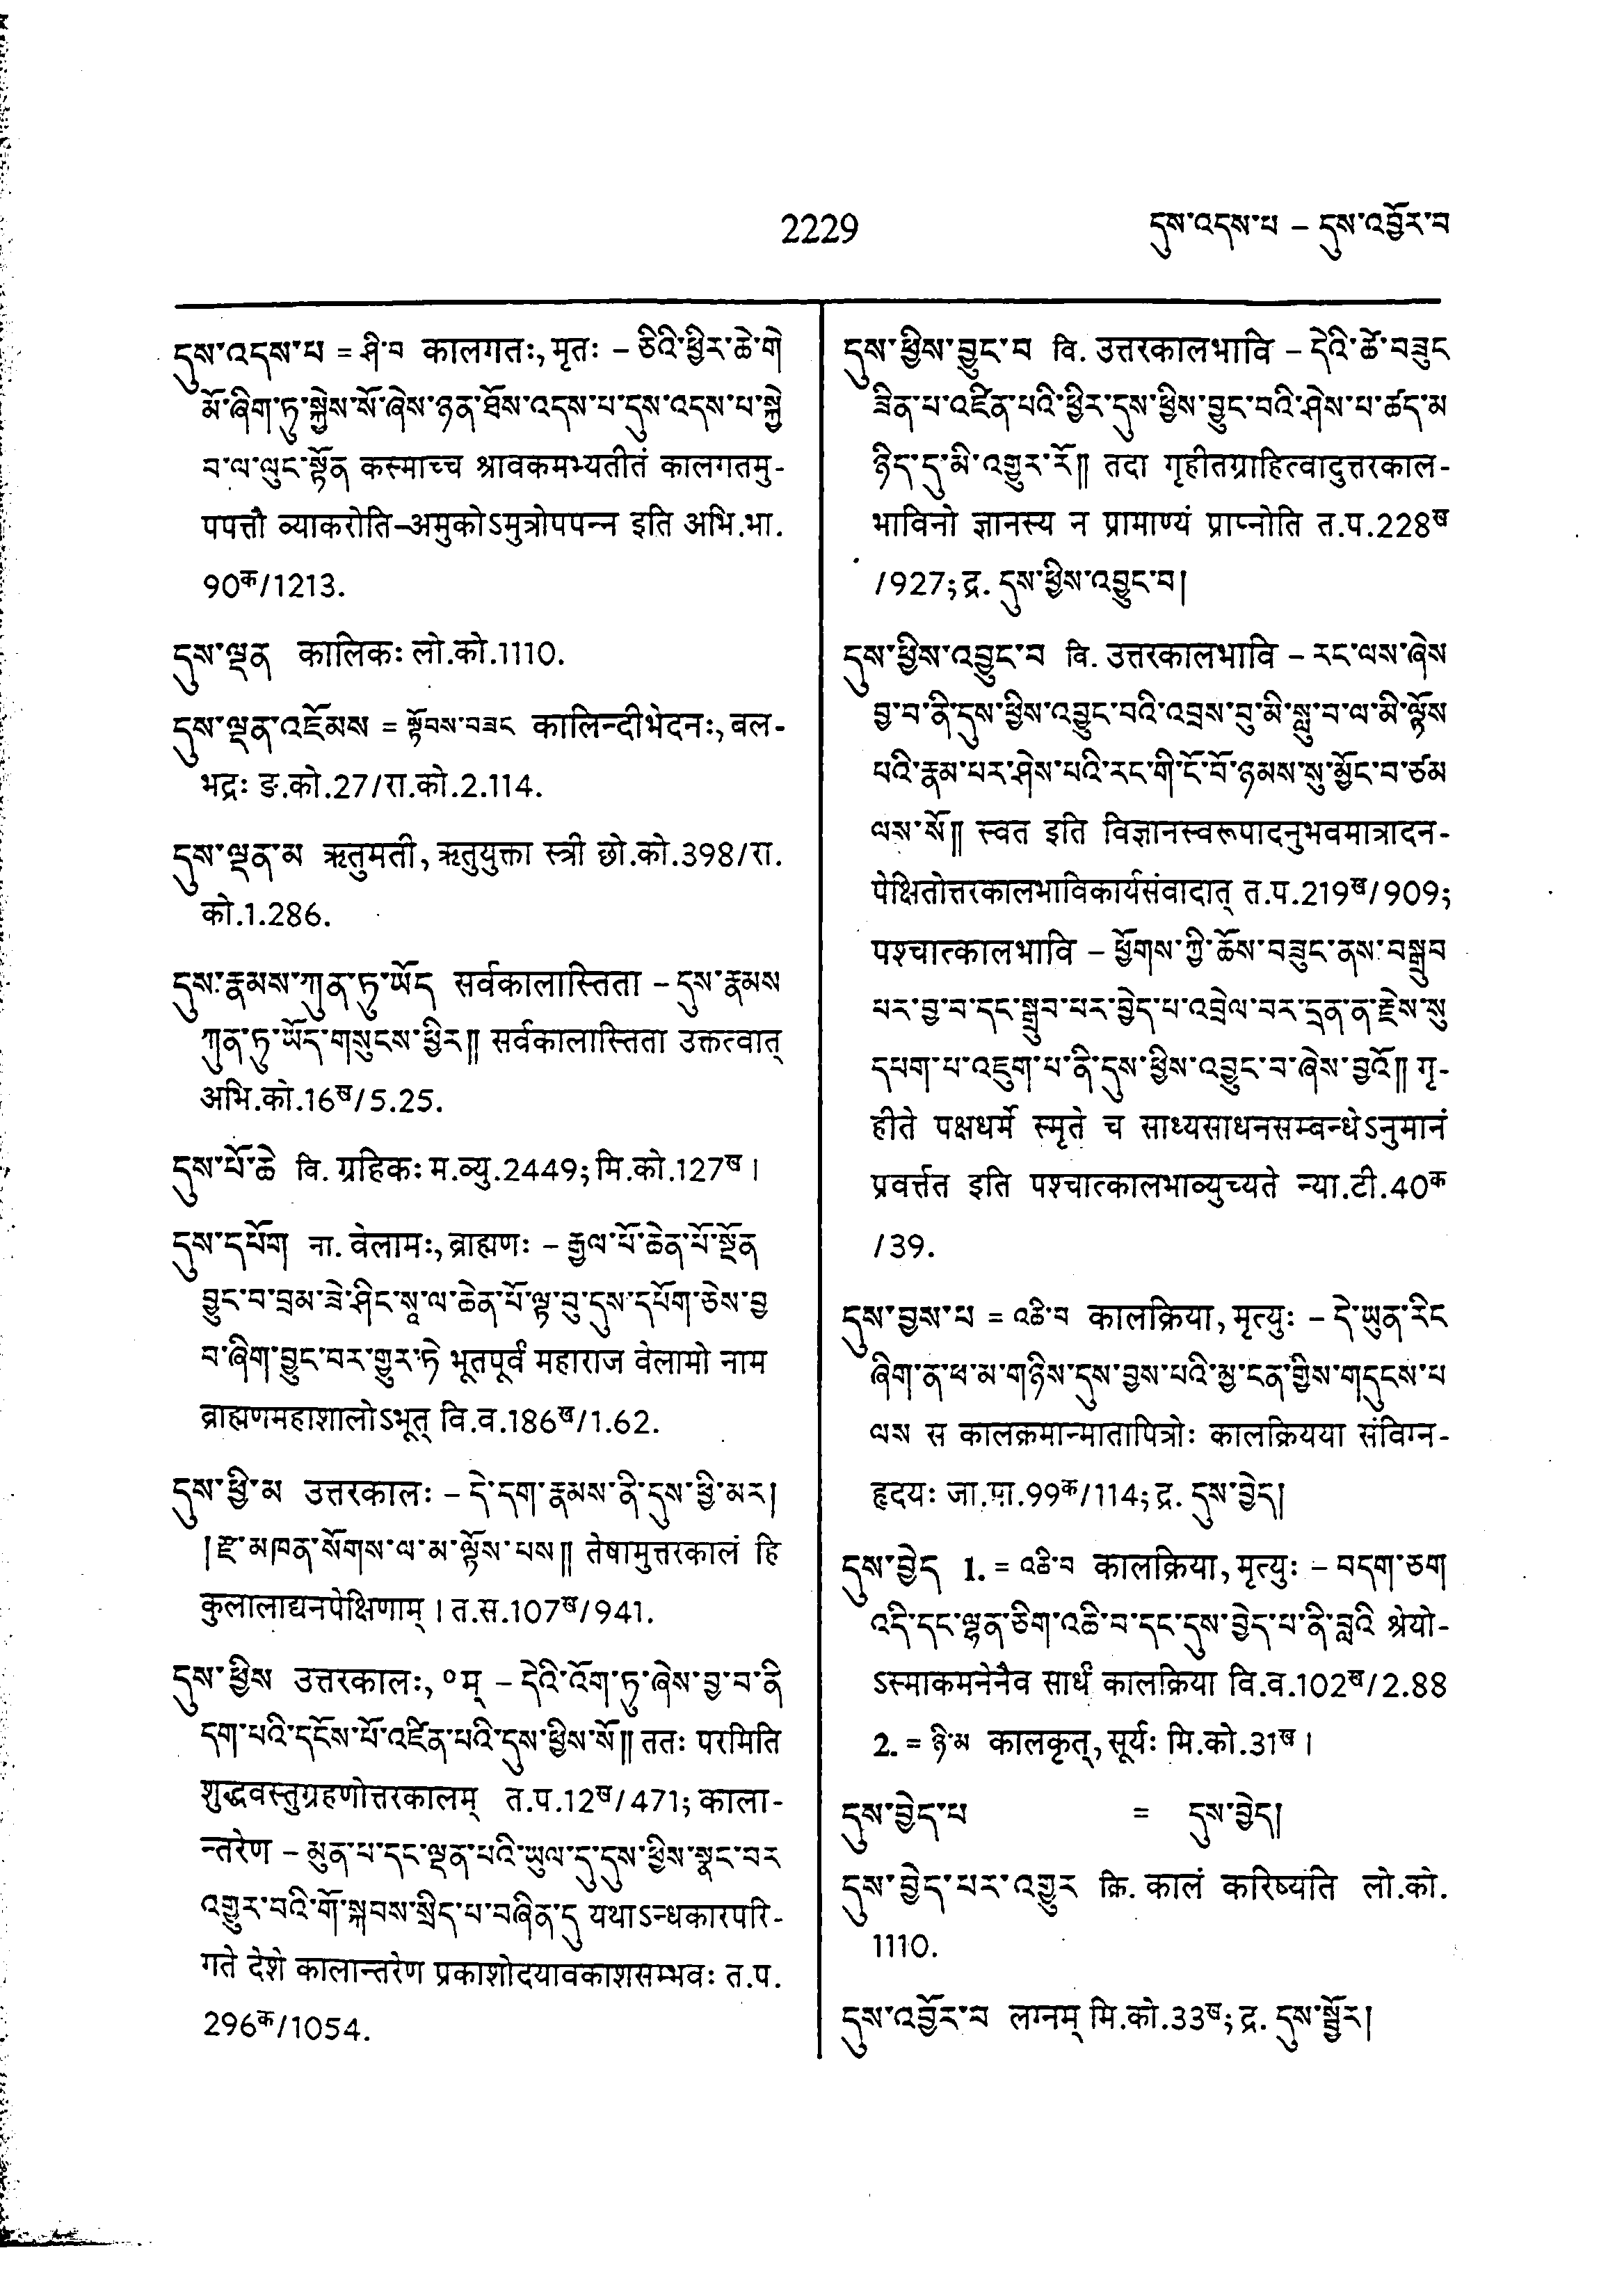 2229
དུས་འདས་པ – དུས་འབྱོར་བ
དུས་འདས་པ = ཤི་བ कालगतः, मृतः – ཅིའི་ཕྱིར་ཆེ་གེ
མོ་ཞིག་ཏུ་སྐྱེས་སོ་ཞེས་ཉན་ཐོས་འདས་པ་དུས་འདས་པ་སྐྱེ
བ་ལ་ལུང་སྟོན कस्माच्च श्रावकमभ्यतीतं कालगतमु-
पपत्तौ व्याकरोति–अमुकोऽमुत्रोपपन्न इति अभि.भा.
90क/1213.
དུས་ལྡན कालिकः लो.को.1110.
དུས་ལྡན་འཇོམས = སྟོབས་བཟང कालिन्दीभेदनः, बल-
भद्रः ङ.को.27/रा.को.2.114.
དུས་ལྡན་མ ऋतुमती, ऋतुयुक्ता स्त्री छो.को.398/रा.
को.1.286.
དུས་རྣམས་ཀུན་ཏུ་ཡོད सर्वकालास्तिता – དུས་རྣམས
ཀུན་ཏུ་ཡོད་གསུངས་ཕྱིར༎ सर्वकालास्तिता उक्तत्वात्
अभि.को.16ख/5.25.
དུས་པོ་ཆེ वि. ग्रहिकः म.व्यु.2449; मि.को.127ख।
དུས་དཔོག ना. वेलामः, ब्राह्मणः – རྒྱལ་པོ་ཆེན་པོ་སྔོན
བྱུང་བ་བྲམ་ཟེ་ཤིང་སཱ་ལ་ཆེན་པོ་ལྟ་བུ་དུས་དཔོག་ཅེས་བྱ
བ་ཞིག་བྱུང་བར་གྱུར་ཏེ भूतपूर्वं महाराज वेलामो नाम
ब्राह्मणमहाशालोऽभूत् वि.व.186ख/1.62.
དུས་ཕྱི་མ उत्तरकालः – དེ་དག་རྣམས་ནི་དུས་ཕྱི་མར།
།རྫ་མཁན་སོགས་ལ་མ་ལྟོས་པས༎ तेषामुत्तरकालं हि
कुलालाद्यनपेक्षिणाम्। त.स.107ख/941.
དུས་ཕྱིས उत्तरकालः, ०म् – དེའི་འོག་ཏུ་ཞེས་བྱ་བ་ནི
དག་པའི་དངོས་པོ་འཛིན་པའི་དུས་ཕྱིས་སོ༎ ततः परमिति
शुद्धवस्तुग्रहणोत्तरकालम् त.प.12ख/471; काला-
न्तरेण – མུན་པ་དང་ལྡན་པའི་ཡུལ་དུ་དུས་ཕྱིས་སྣང་བར
འགྱུར་བའི་གོ་སྐབས་སྲིད་པ་བཞིན་དུ यथाऽन्धकारपरि-
गते देशे कालान्तरेण प्रकाशोदयावकाशसम्भवः त.प.
296क/1054.
དུས་ཕྱིས་བྱུང་བ वि. उत्तरकालभावि – དེའི་ཚེ་བཟུང
ཟིན་པ་འཛིན་པའི་ཕྱིར་དུས་ཕྱིས་བྱུང་བའི་ཤེས་པ་ཚད་མ
ཉིད་དུ་མི་འགྱུར་རོ༎ तदा गृहीतग्राहित्वादुत्तरकाल-
भाविनो ज्ञानस्य न प्रामाण्यं प्राप्नोति त.प.228ख
/927; द्र. དུས་ཕྱིས་འབྱུང་བ།
དུས་ཕྱིས་འབྱུང་བ वि. उत्तरकालभावि – རང་ལས་ཞེས
བྱ་བ་ནི་དུས་ཕྱིས་འབྱུང་བའི་འབྲས་བུ་མི་སླུ་བ་ལ་མི་ལྟོས
པའི་རྣམ་པར་ཤེས་པའི་རང་གི་ངོ་བོ་ཉམས་སུ་མྱོང་བ་ཙམ
ལས་སོ༎ स्वत इति विज्ञानस्वरूपादनुभवमात्रादन-
पेक्षितोत्तरकालभाविकार्यसंवादात् त.प.219ख/909;
पश्चात्कालभावि – ཕྱོགས་ཀྱི་ཆོས་བཟུང་ནས་བསྒྲུབ
པར་བྱ་བ་དང་སྒྲུབ་པར་བྱེད་པ་འབྲེལ་བར་དྲན་ན་རྗེས་སུ
དཔག་པ་འཇུག་པ་ནི་དུས་ཕྱིས་འབྱུང་བ་ཞེས་བྱའོ༎ गृ-
हीते पक्षधर्मे स्मृते च साध्यसाधनसम्बन्धेऽनुमानं
प्रवर्त्तत इति पश्चात्कालभाव्युच्यते न्या.टी.40क
/39.
དུས་བྱས་པ = འཆི་བ कालक्रिया, मृत्युः – དེ་ཡུན་རིང
ཞིག་ན་ཕ་མ་གཉིས་དུས་བྱས་པའི་མྱ་ངན་གྱིས་གདུངས་པ
ལས स कालक्रमान्मातापित्रोः कालक्रियया संविग्न-
हृदयः जा.मा.99क/114; द्र. དུས་བྱེད།
དུས་བྱེད 1. = འཆི་བ कालक्रिया, मृत्युः – བདག་ཅག
འདི་དང་ལྷན་ཅིག་འཆི་བ་དང་དུས་བྱེད་པ་ནི་བླའི श्रेयो-
ऽस्माकमनेनैव सार्धं कालक्रिया वि.व.102ख/2.88
2. = ཉི་མ कालकृत्, सूर्यः मि.को.31ख।
དུས་བྱེད་པ = དུས་བྱེད།
དུས་བྱེད་པར་འགྱུར क्रि. कालं करिष्यंति लो.को.
1110.
དུས་འབྱོར་བ लग्नम् मि.को.33ख; द्र. དུས་སྦྱོར།